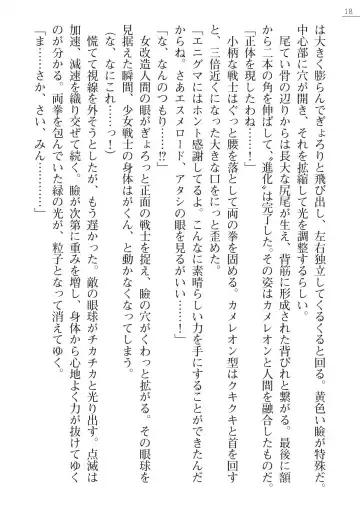 18
は大きく膨らんでぎょろりと飛び出し、左右独立してくるくると回る。黄色い瞼が特殊だ。
中心部に穴が開き、それを拡縮して光を調整するらしい。
尾てい骨の辺りからは長大な尻尾が生え、背筋に形成された背びれと繋がる。最後に額
から二本の角を伸ばして、〝進化〟は完了した。その姿はカメレオンと人間を融合したものだ。
「正体を現したわね……！」
小柄な戦士はぐっと腰を落として両の拳を固める。カメレオン型はクキクキと首を回す
と、三倍近くになった大きな口をにっと歪めた。
「エニグマにはホント感謝してるよ。こんなに素晴らしい力を手にすることができたんだ
からね。さあエスメロード、アタシの眼を見るがいい……！」
「な、なんのつもり……⁉」
女改造人間の眼がぎょろっと正面の戦士を捉え、瞼の穴がくわっと拡がる。その眼球を
見据えた瞬間、少女戦士の身体はがくん、と動かなくなってしまう。
（な、なにこれ……っ！）
慌てて視線を外そうとしたが、もう遅かった。敵の眼球がチカチカと光り出す。点滅は
加速、減速を織り交ぜて続く。瞼が次第に重みを増し、身体から心地よく力が抜けてゆく
のが分かる。両拳を包んでいた緑の光が、粒子となって消えてゆく。
「ま……さか、さい、みん………」